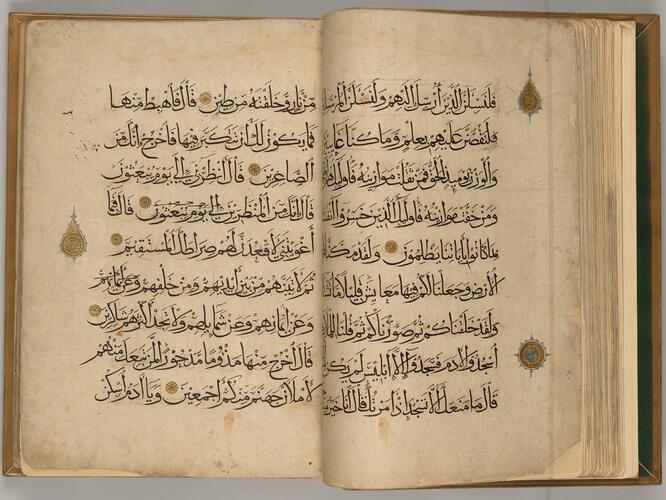 فلنسئلن الذين أرسل إليهم ولنسئلن
فلنقصن عليهم بعلم وما كنا
والوزن يومئذ الحق فمن ثقلت موازينه فأولئك
ومن خفت موازينه فأولئك الذين خسروا
بما كانوا بآياتنا يظلمون ولقد
الأرض وجعلنا لكم فيها معايش قليلا ما
ولقد خلقناكم ثم صورناكم ثم قلنا
اسجدوا لآدم فسجدوا إلا إبليس لم يكن
قال ما منعك ألا تسجد إذ أمرتك قال أنا خير
من نار وخلقته من طين قال فاهبط منها
فما يكون لك أن تتكبر فيها فاخرج إنك من
الصاغرين قال أنظرني إلى يوم يبعثون
قال إنك من المنظرين إلى يوم يبعثون قال فبما
أغويتني لأقعدن لهم صراطك المستقيم
ثم لآتينهم من بين أيديهم ومن خلفهم وعن أيمانهم
وعن أيمانهم وعن شمائلهم ولا تجد أكثرهم شاكرين
قال اخرج منها مذؤما مدحورا لمن تبعك منهم
لأملأن جهنم منكم أجمعين ويا آدم اسكن